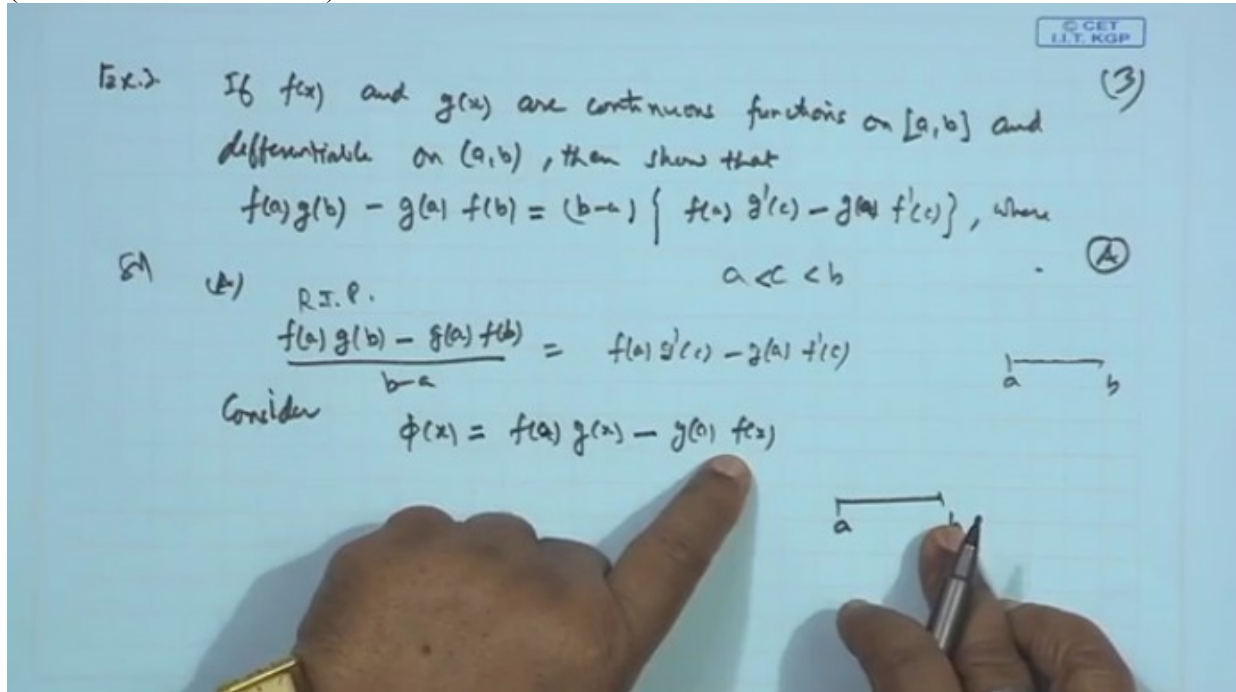 © CET
I.I.T. KGP
(3)
Ex.3. If f(x) and g(x) are continuous functions on [a,b] and
differentiable on (a,b), then show that
f(a) g(b) - g(a) f(b) = (b-a) { f(a) g'(c) - g(a) f'(c)}, where
a < c < b . (A)
Sol (A) R.T.P.
f(a) g(b) - g(a) f(b) / b-a = f(a) g'(c) - g(a) f'(c)
a b
Consider
φ(x) = f(a) g(x) - g(a) f(x)
a b